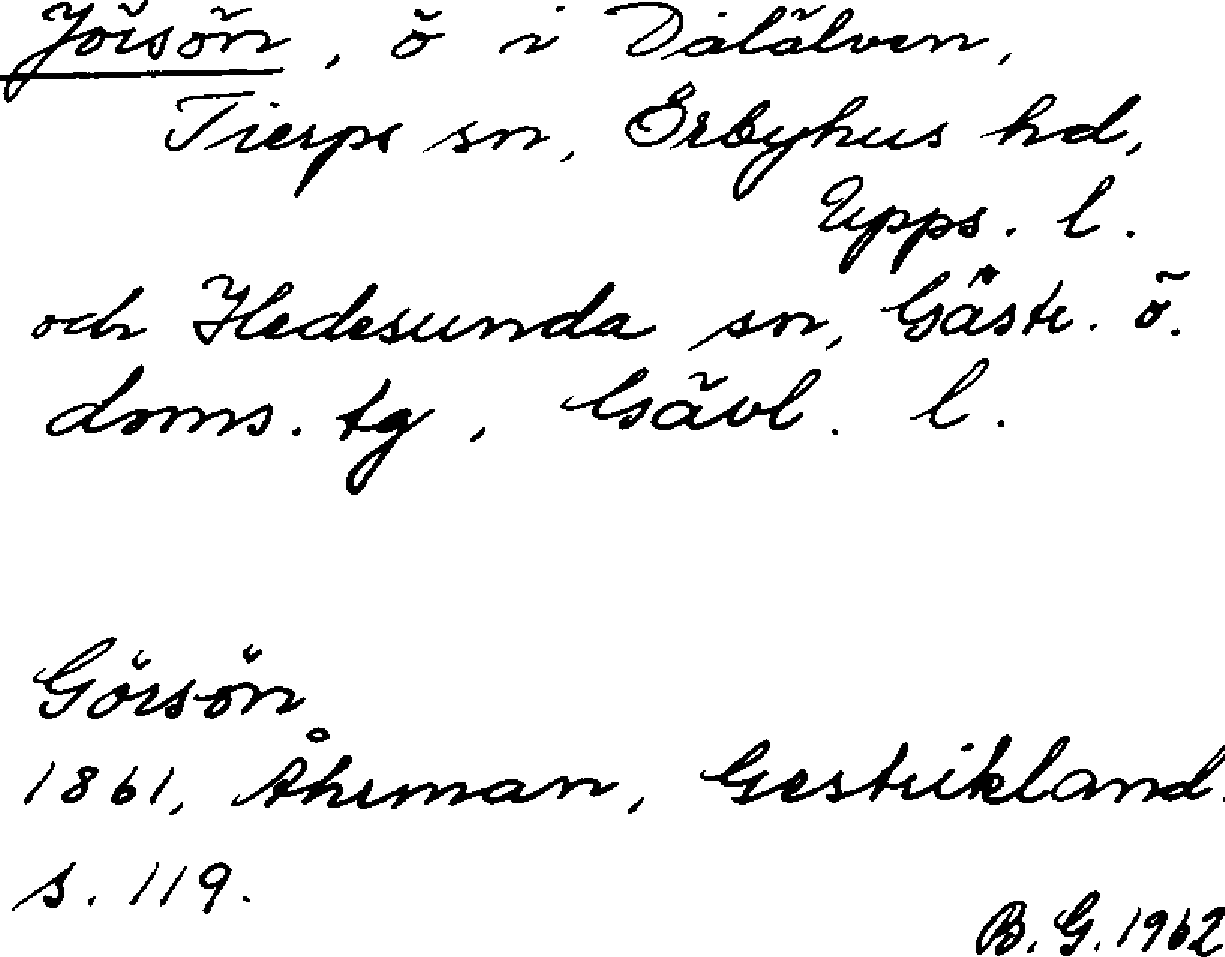 Jörsön, ö i Dalälven,
Tierps sn, Örbyhus hd,
Upps. l.
och Hedesunda sn, Gästr. ö.
doms. tg, Gävl. l.
Görsön
1861, Åhrman, Gestrikland.
s. 119.
B. G. 1962